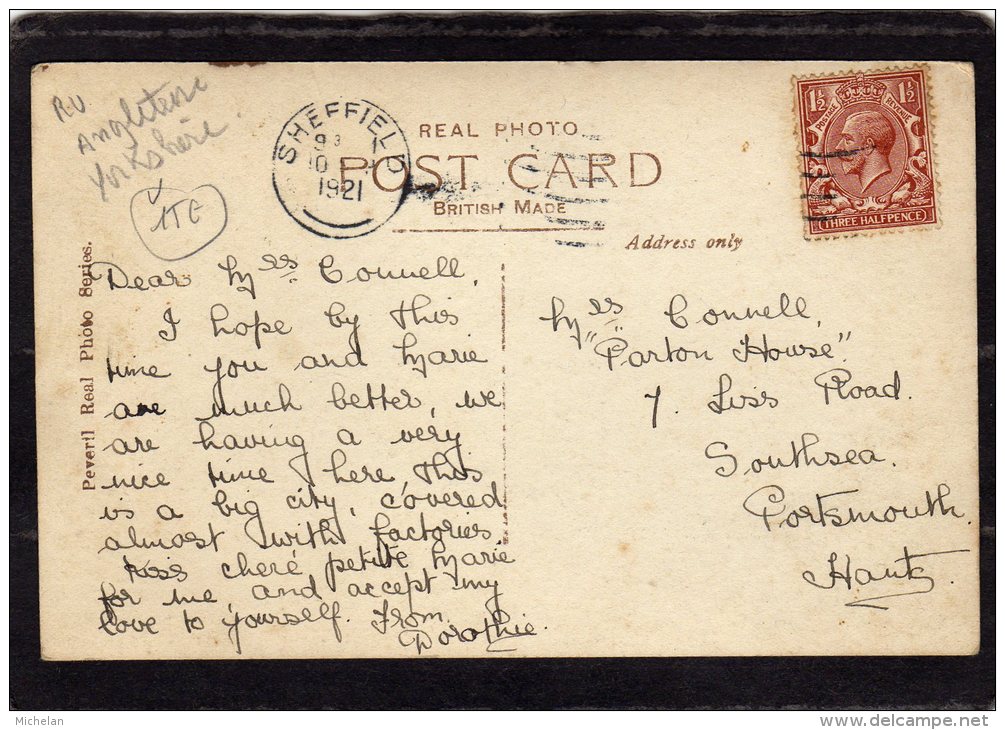 R.V
Angleterre
Yorkshire.
SHEFFIELD
93
10
1921
REAL PHOTO
POST CARD
BRITISH MADE
Address only
1½ 1½
POSTAGE REVENUE
THREE HALFPENCE
Peveril Real Photo Series.
Dear Mrs Connell,
I hope by this
time you and Marie
are much better, we
are having a very
nice time here, this
is a big city, covered
almost with factories
Kiss cheré petite Marie
for me, and accept my
love to yourself. From
Dorothie.
Mrs Connell,
"Parton House"
7. Liss Road.
Southsea.
Portsmouth.
Hants
Michelan
www.delcampe.net